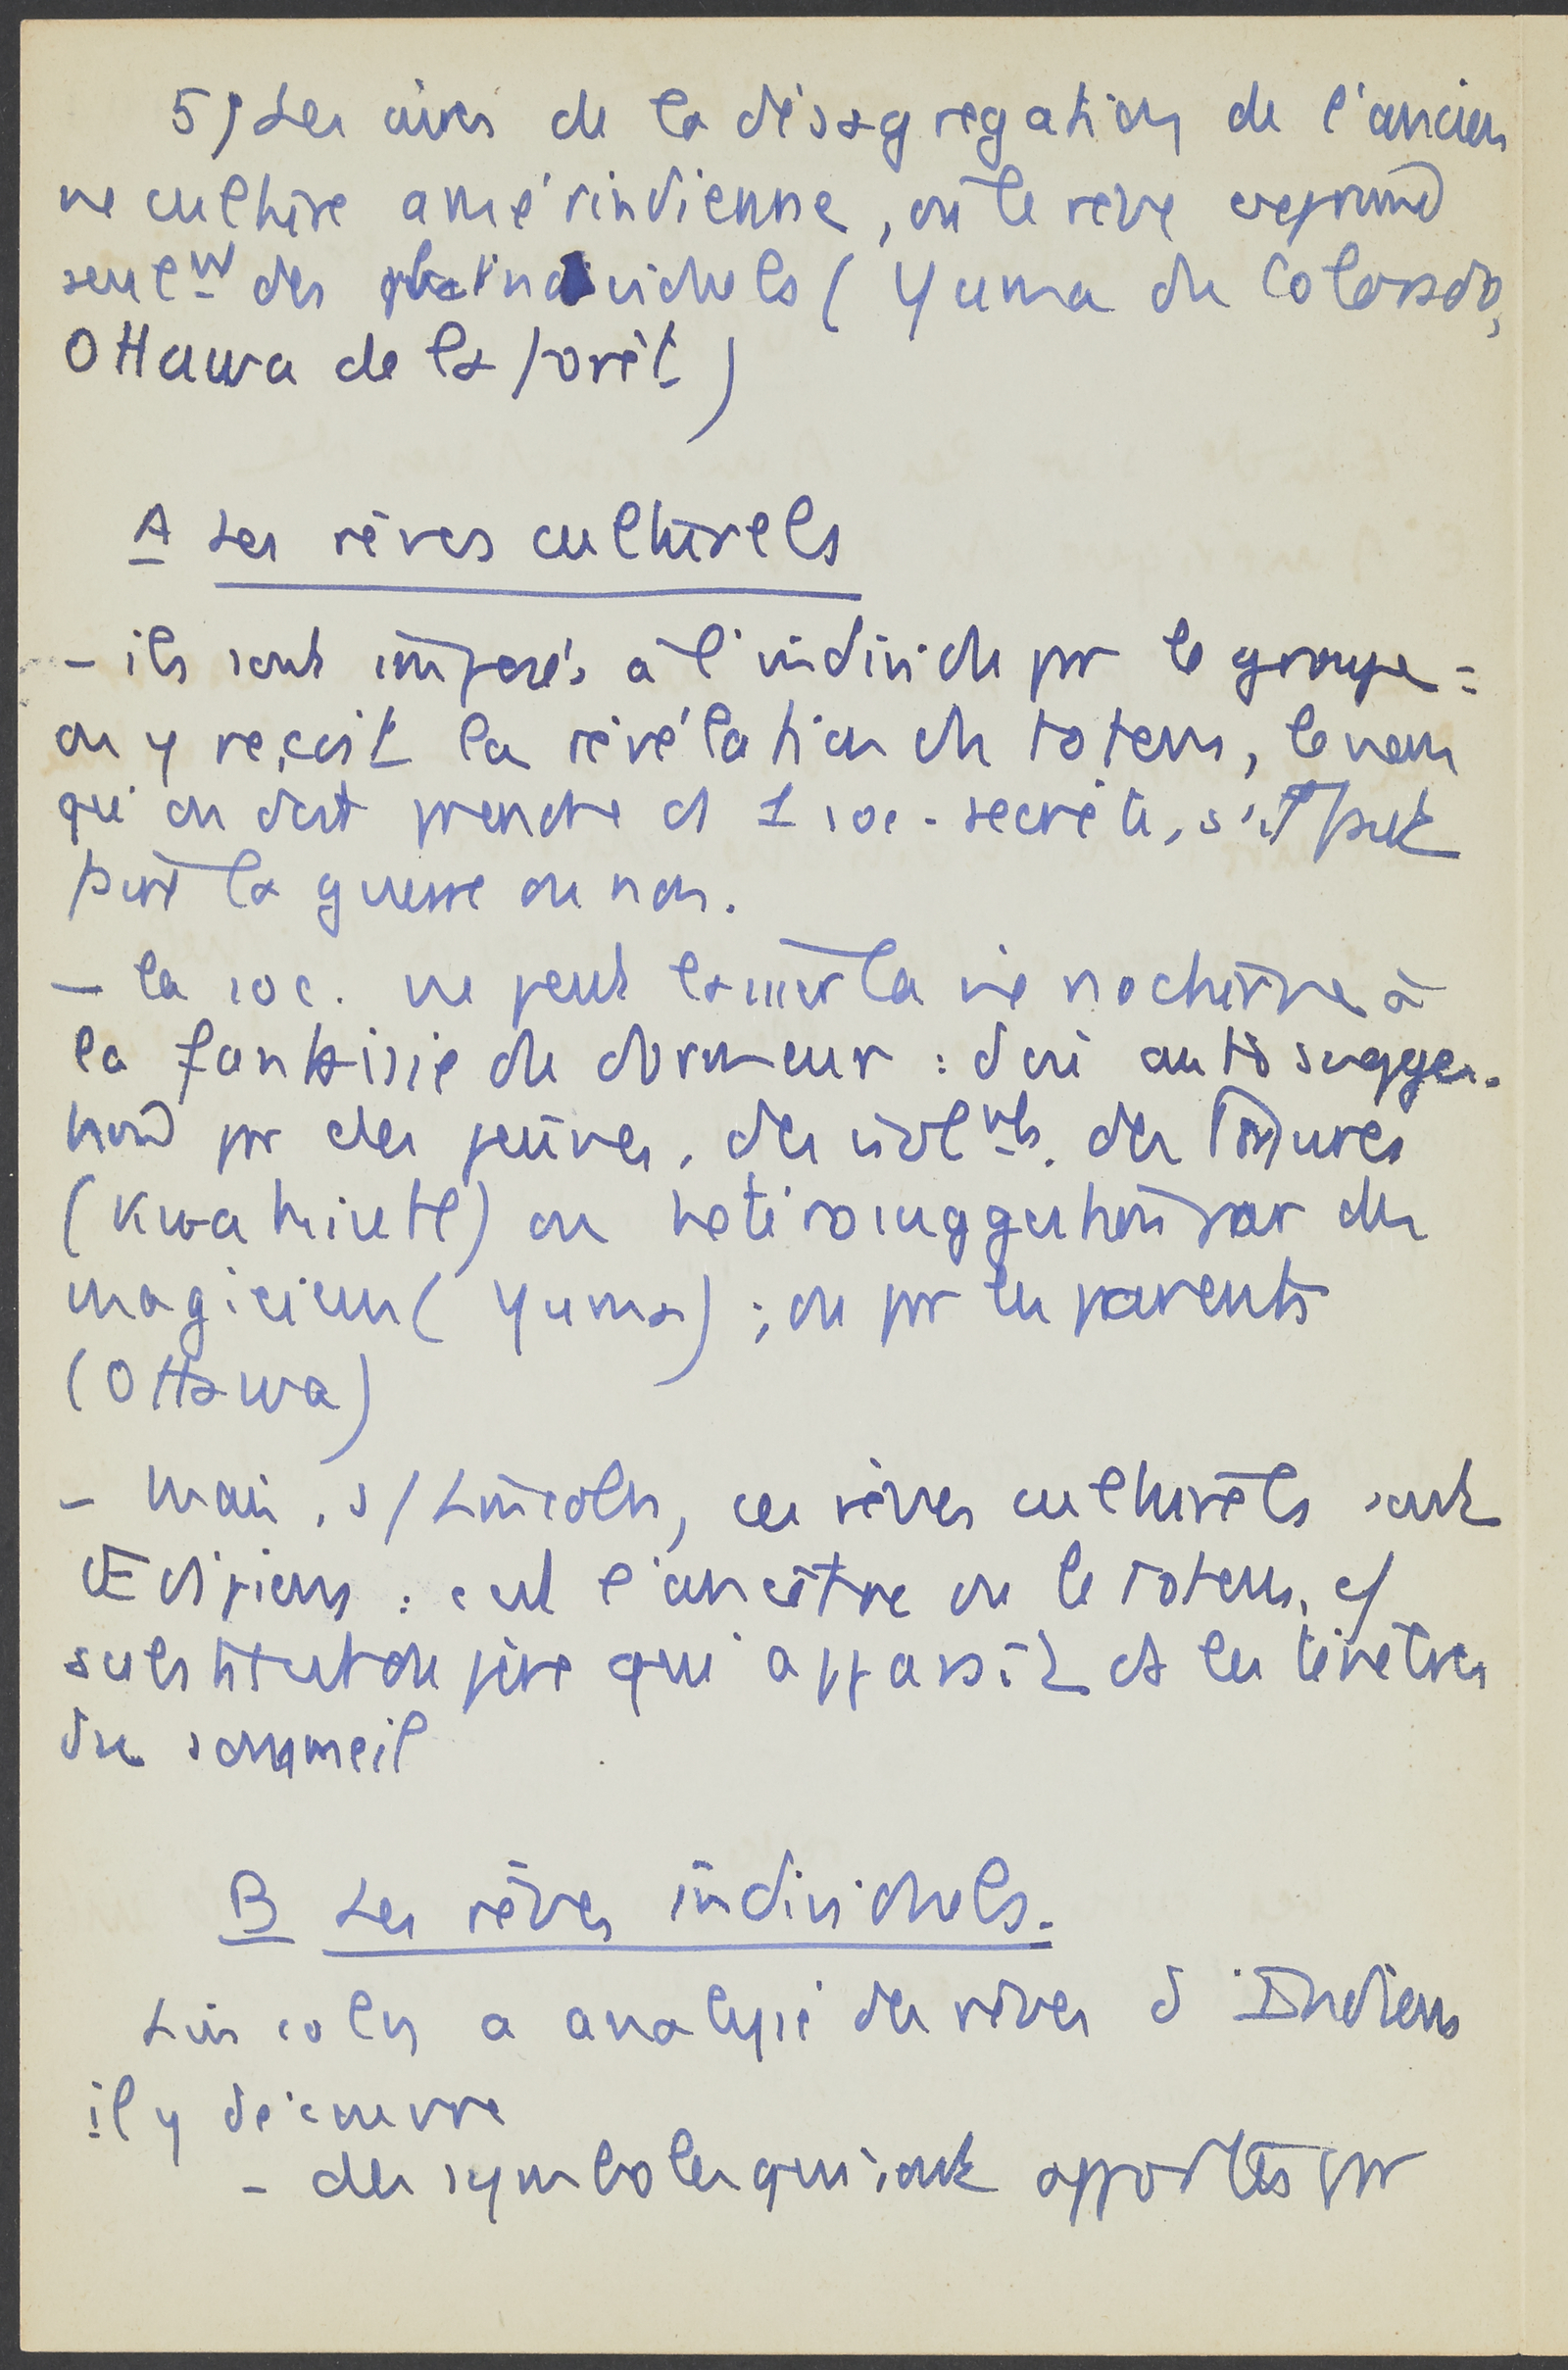 5) Les aires de la désagrégation de l'ancien
ne culture amérindienne, où le rêve exprime
seulmt des individuels (Yuma du Colorado,
Ottawa de la forêt)
A Les rêves culturels
- ils sont imposés à l'individu pr le groupe :
on y reçoit la révélation du totem, le nom
qu'on doit prendre ds 1 soc. secrète, s'il faut
faire la guerre ou non.
- la soc. ne peut laisser la vie nocturne à
la fantaisie du dormeur : d'où autosugges-
tion pr des jeûnes, des isolmts, des tortures
(Kwakiutl) ou hétérosuggestion par des
magiciens (Yuma) ; ou pr les parents
(Ottawa)
- Mais, s/ Lincoln, ces rêves culturels sont
Œdipiens : c'est l'ancêtre ou le totem, cf
substitut du père qui apparaît ds les ténèbres
du sommeil
B Les rêves individuels.
Lincoln a analysé des rêves d'Indiens
il y découvre
- des symboles qui sont apportés pr